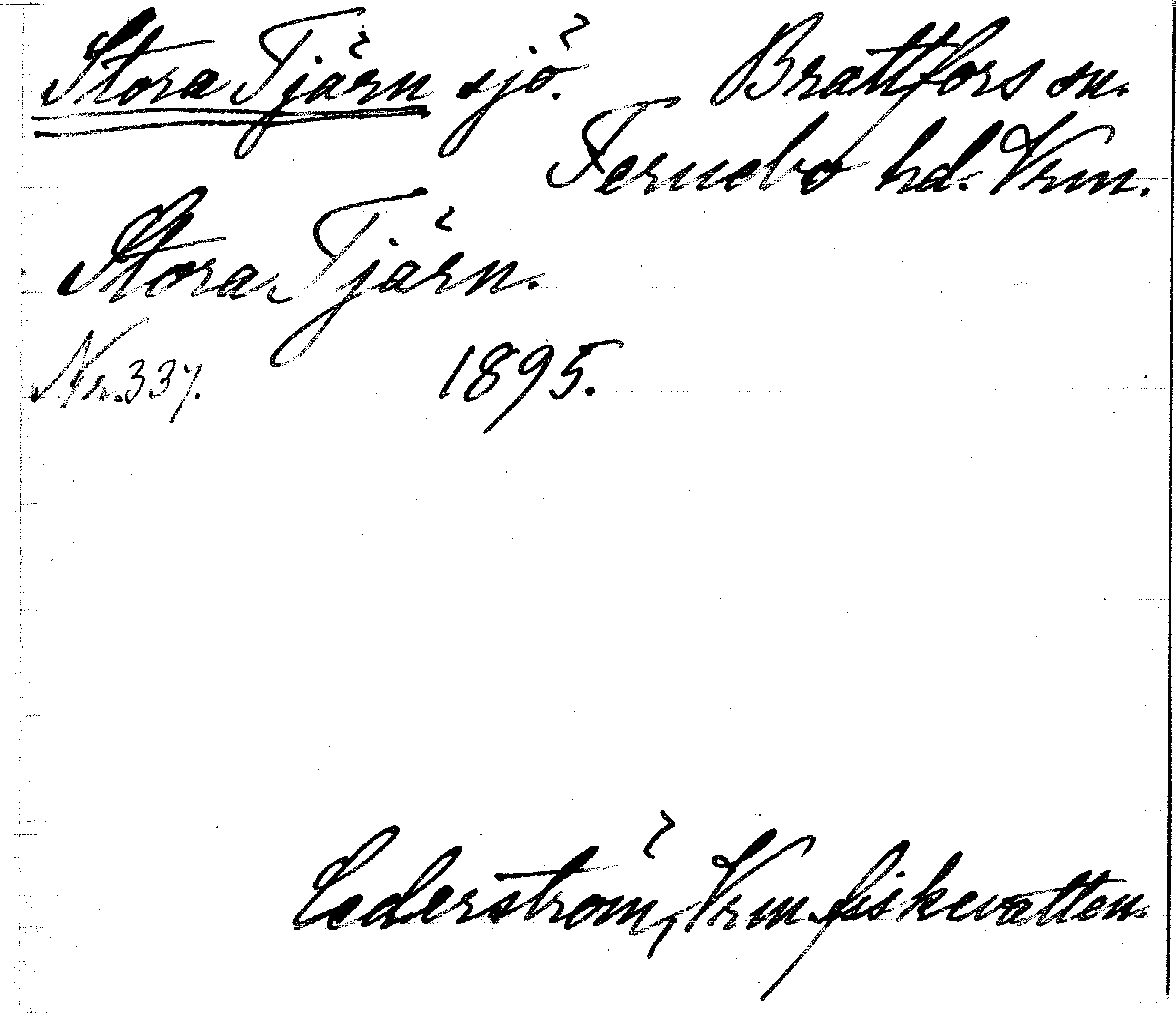 Stora Tjärn sjö. Brattfors sn.
Fernebo hd. Vrm.
Stora Tjärn.
Nr. 337. 1895.
Cederström, Vrm. fiskevatten.